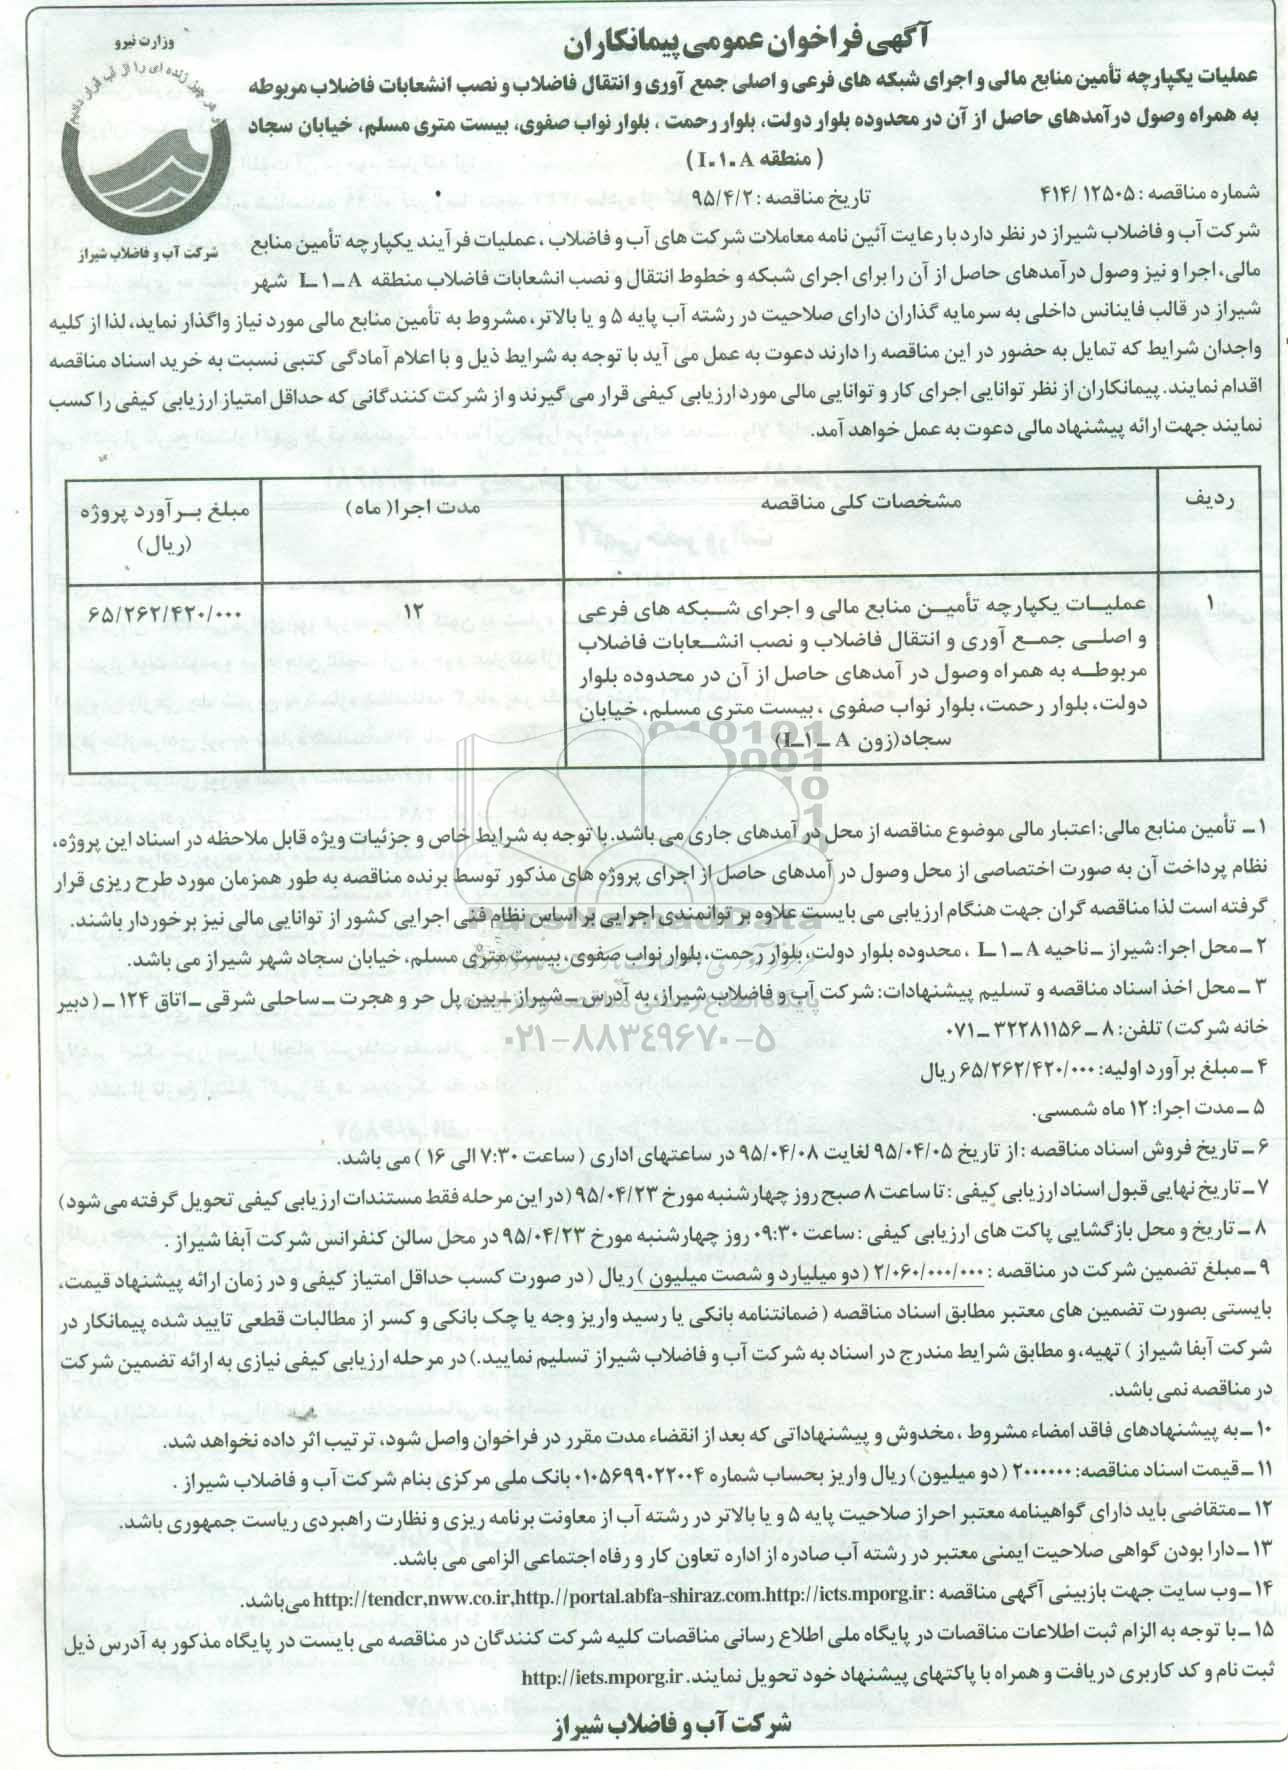 آگهی فراخوان عمومی پیمانکاران
وزارت نیرو
شرکت آب و فاضلاب شیراز
عملیات یکپارچه تأمین منابع مالی و اجرای شبکه های فرعی و اصلی جمع آوری و انتقال فاضلاب و نصب انشعابات فاضلاب مربوطه
به همراه وصول درآمدهای حاصل از آن در محدوده بلوار دولت، بلوار رحمت ، بلوار نواب صفوی، بیست متری مسلم، خیابان سجاد
( منطقه I-۱-A )
شماره مناقصه : ۴۱۴/ ۱۲۵۰۵
تاریخ مناقصه : ۹۵/۴/۲
شرکت آب و فاضلاب شیراز در نظر دارد با رعایت آئین نامه معاملات شرکت های آب و فاضلاب ، عملیات فرآیند یکپارچه تأمین منابع
مالی، اجرا و نیز وصول درآمدهای حاصل از آن را برای اجرای شبکه و خطوط انتقال و نصب انشعابات فاضلاب منطقه L-۱-A شهر
شیراز در قالب فاینانس داخلی به سرمایه گذاران دارای صلاحیت در رشته آب پایه ۵ و یا بالاتر، مشروط به تأمین منابع مالی مورد نیاز واگذار نماید، لذا از کلیه
واجدان شرایط که تمایل به حضور در این مناقصه را دارند دعوت به عمل می آید با توجه به شرایط ذیل و با اعلام آمادگی کتبی نسبت به خرید اسناد مناقصه
اقدام نمایند. پیمانکاران از نظر توانایی اجرای کار و توانایی مالی مورد ارزیابی کیفی قرار می گیرند و از شرکت کنندگانی که حداقل امتیاز ارزیابی کیفی را کسب
نمایند جهت ارائه پیشنهاد مالی دعوت به عمل خواهد آمد.
ردیف
مشخصات کلی مناقصه
مدت اجرا( ماه)
مبلغ بـرآورد پروژه
(ریال)
۱
عملیـات یکپارچه تأمیـن منابع مالی و اجرای شـبکه های فرعی
و اصلـی جمـع آوری و انتقال فاضلاب و نصب انشـعابات فاضلاب
مربوطـه به همراه وصول در آمدهای حاصل از آن در محدوده بلوار
دولت، بلوار رحمت، بلوار نواب صفوی ، بیست متری مسلم، خیابان
سجاد(زون L-۱-A)
۱۲
۶۵/۲۶۲/۴۲۰/۰۰۰
۱ـ تأمین منابع مالی: اعتبار مالی موضوع مناقصه از محل در آمدهای جاری می باشد. با توجه به شرایط خاص و جزئیات ویژه قابل ملاحظه در اسناد این پروژه،
نظام پرداخت آن به صورت اختصاصی از محل وصول در آمدهای حاصل از اجرای پروژه های مذکور توسط برنده مناقصه به طور همزمان مورد طرح ریزی قرار
گرفته است لذا مناقصه گران جهت هنگام ارزیابی می بایست علاوه بر توانمندی اجرایی بر اساس نظام فنی اجرایی کشور از توانایی مالی نیز برخوردار باشند.
ParsNamadData
۲ ـ محل اجرا: شیراز ـ ناحیه L-۱-A ، محدوده بلوار دولت، بلوار رحمت، بلوار نواب صفوی، بیست متری مسلم، خیابان سجاد شهر شیراز می باشد.
۳ ـ محل اخذ اسناد مناقصه و تسلیم پیشنهادات: شرکت آب و فاضلاب شیراز، به آدرس ـ شیراز ـ بین پل حر و هجرت ـ ساحلی شرقی ـ اتاق ۱۲۴ ـ ( دبیر
خانه شرکت) تلفن: ۸ ـ ۳۲۲۸۱۱۵۶ ـ ۰۷۱
۰۲۱-۸۸۳۴۹۶۷۰-۵
۴ ـ مبلغ برآورد اولیه: ۶۵/۲۶۲/۴۲۰/۰۰۰ ریال
۵ ـ مدت اجرا: ۱۲ ماه شمسی.
۶ ـ تاریخ فروش اسناد مناقصه :از تاریخ ۹۵/۰۴/۰۵ لغایت ۹۵/۰۴/۰۸ در ساعتهای اداری ( ساعت ۷:۳۰ الی ۱۶ ) می باشد.
۷ ـ تاریخ نهایی قبول اسناد ارزیابی کیفی : تا ساعت ۸ صبح روز چهارشنبه مورخ ۹۵/۰۴/۲۳ (در این مرحله فقط مستندات ارزیابی کیفی تحویل گرفته می شود)
۸ ـ تاریخ و محل بازگشایی پاکت های ارزیابی کیفی : ساعت ۰۹:۳۰ روز چهارشنبه مورخ ۹۵/۰۴/۲۳ در محل سالن کنفرانس شرکت آبفا شیراز .
۹ ـ مبلغ تضمین شرکت در مناقصه : ۲/۰۶۰/۰۰۰/۰۰۰ ( دو میلیارد و شصت میلیون ) ریال ( در صورت کسب حداقل امتیاز کیفی و در زمان ارائه پیشنهاد قیمت،
بایستی بصورت تضمین های معتبر مطابق اسناد مناقصه ( ضمانتنامه بانکی یا رسید واریز وجه یا چک بانکی و کسر از مطالبات قطعی تایید شده پیمانکار در
شرکت آبفا شیراز ) تهیه، و مطابق شرایط مندرج در اسناد به شرکت آب و فاضلاب شیراز تسلیم نمایید.) در مرحله ارزیابی کیفی نیازی به ارائه تضمین شرکت
در مناقصه نمی باشد.
۱۰ ـ به پیشنهادهای فاقد امضاء مشروط ، مخدوش و پیشنهاداتی که بعد از انقضاء مدت مقرر در فراخوان واصل شود، ترتیب اثر داده نخواهد شد.
۱۱ ـ قیمت اسناد مناقصه: ۲۰۰۰۰۰۰ ( دو میلیون) ریال واریز بحساب شماره ۰۱۰۵۶۹۹۰۲۲۰۰۴ بانک ملی مرکزی بنام شرکت آب و فاضلاب شیراز .
۱۲ ـ متقاضی باید دارای گواهینامه معتبر احراز صلاحیت پایه ۵ و یا بالاتر در رشته آب از معاونت برنامه ریزی و نظارت راهبردی ریاست جمهوری باشد.
۱۳ ـ دارا بودن گواهی صلاحیت ایمنی معتبر در رشته آب صادره از اداره تعاون کار و رفاه اجتماعی الزامی می باشد.
۱۴ ـ وب سایت جهت بازبینی آگهی مناقصه : http://tendcr,nww.co.ir,http.//portal.abfa-shiraz.com.http://icts.mporg.ir می‌باشد.
۱۵ ـ با توجه به الزام ثبت اطلاعات مناقصات در پایگاه ملی اطلاع رسانی مناقصات کلیه شرکت کنندگان در مناقصه می بایست در پایگاه مذکور به آدرس ذیل
ثبت نام و کد کاربری دریافت و همراه با پاکتهای پیشنهاد خود تحویل نمایند. http://iets.mporg.ir
شرکت آب و فاضلاب شیراز